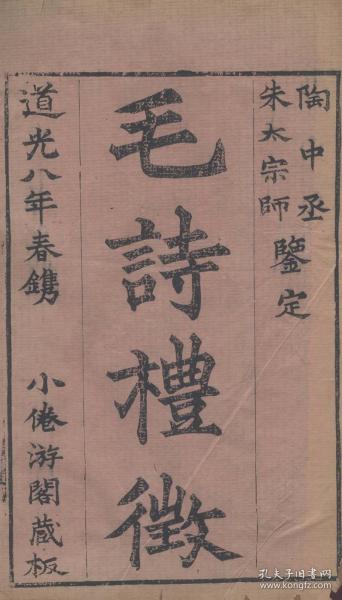 陶中丞
朱太宗師鑒定
毛詩禮徵
道光八年春鐫
小倦游閣藏板
孔夫子旧书网
www.kongfz.com